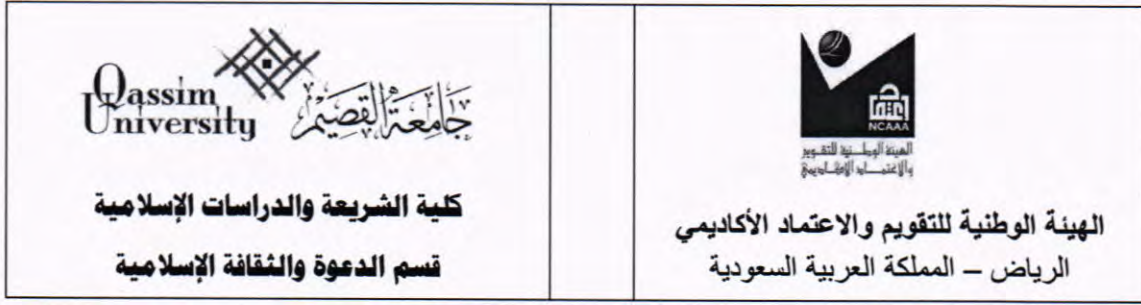 الهيئة الوطنية للتقويم
والاعتماد الأكاديمي
NCAAA
الهيئة الوطنية للتقويم والاعتماد الأكاديمي
الرياض – المملكة العربية السعودية
Qassim
University
جامعة القصيم
كلية الشريعة والدراسات الإسلامية
قسم الدعوة والثقافة الإسلامية